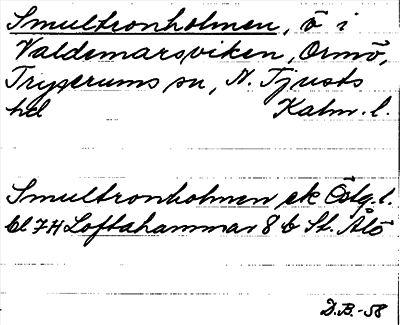 Smultronholmen, ö i
Valdemarsviken, Ormö,
Tryserums sn, N. Tjusts
hd Kalm. l.
Smultronholmen ek Östg. l.
bl 7H Loftahammar 8 b St. Ålö
D.B.-58